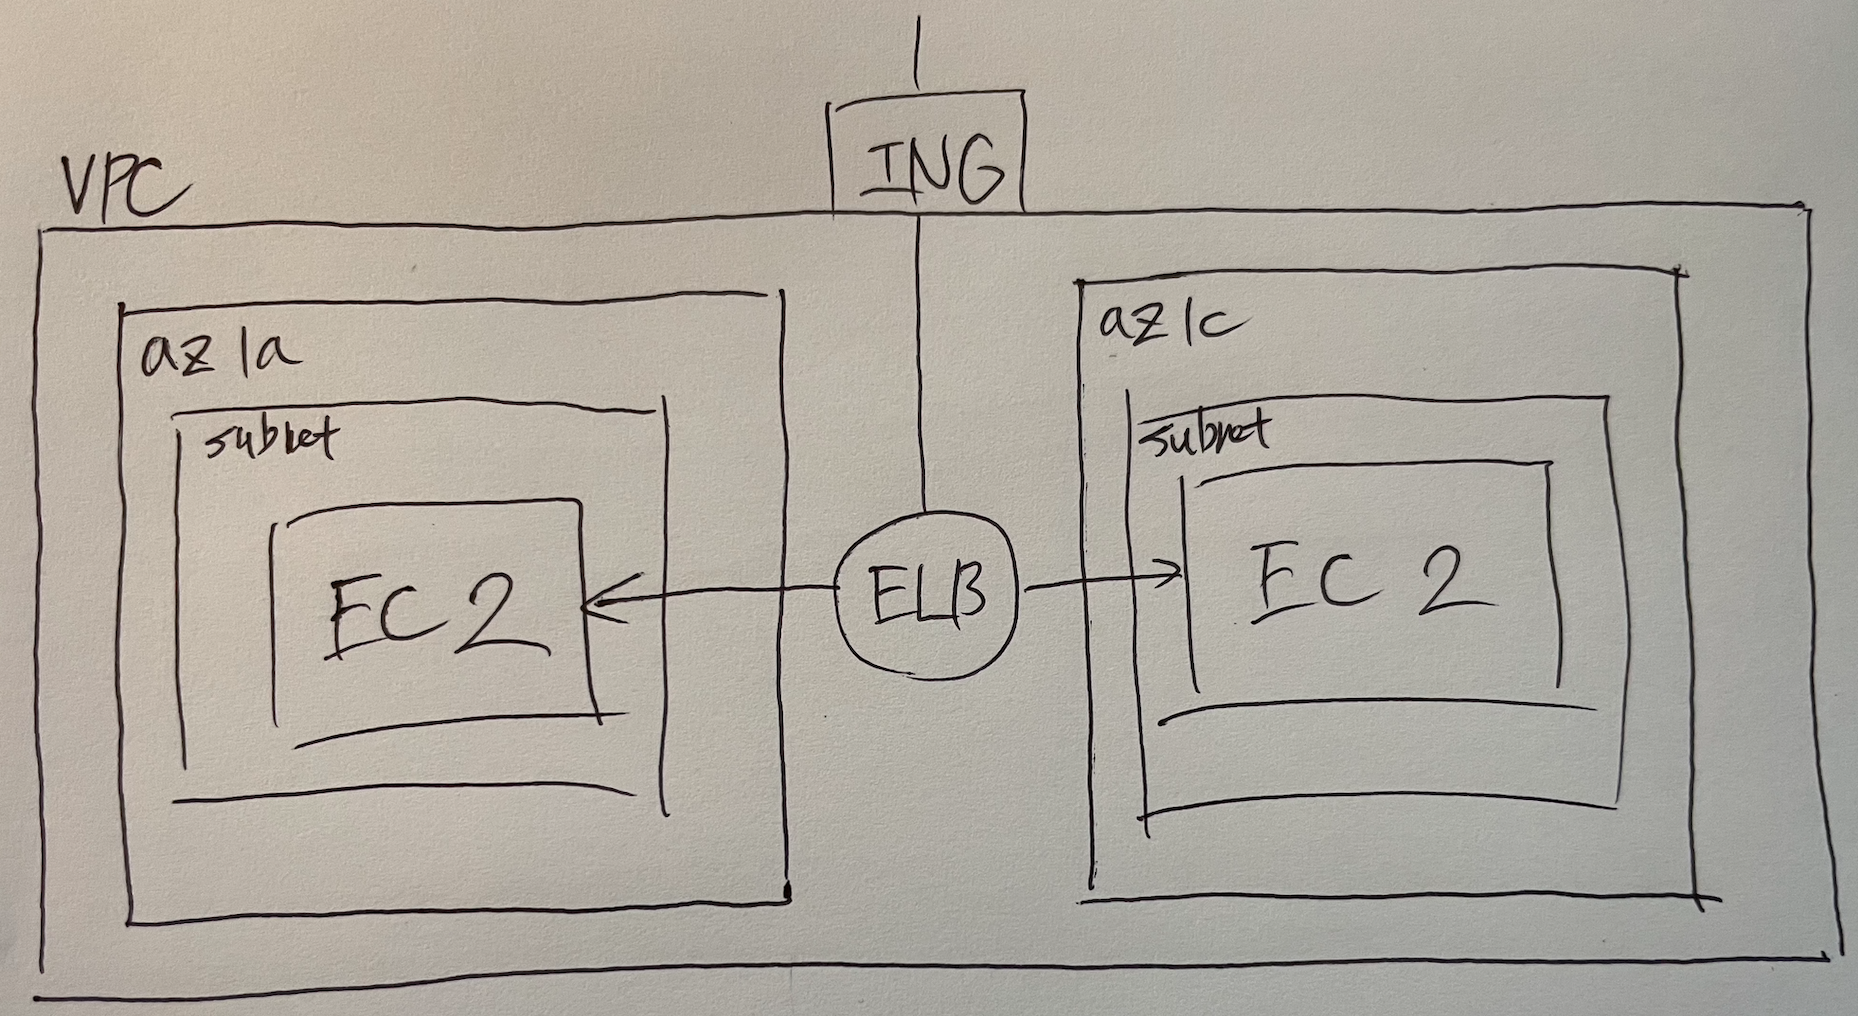 VPC
ING
az 1a
subnet
EC2
ELB
az 1c
subnet
EC2